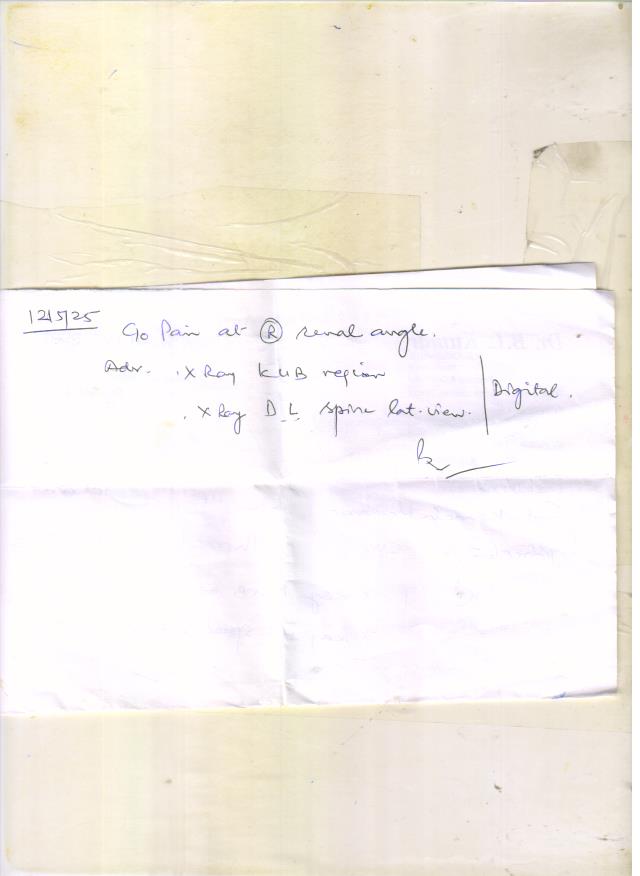 12/5/25
C/o Pain at Ⓡ renal angle.
Adv. . X Ray KUB region
. X Ray D L spine lat. view.
Digital.